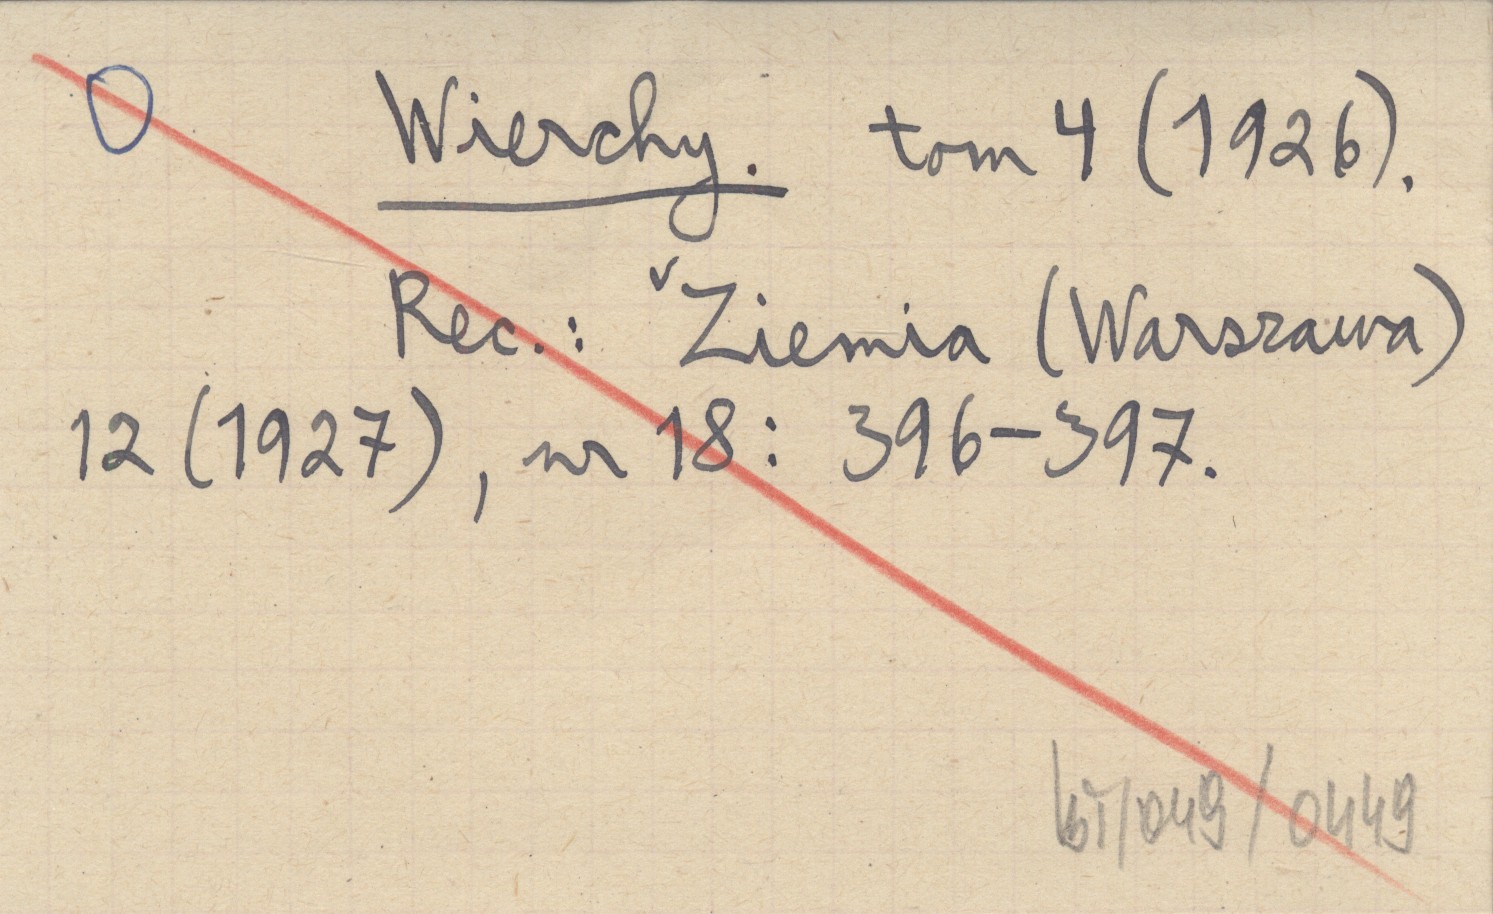 Wierchy. tom 4 (1926).
Rec.: ᵛZiemia (Warszawa)
12 (1927), nr 18: 396-397.
/049/0449